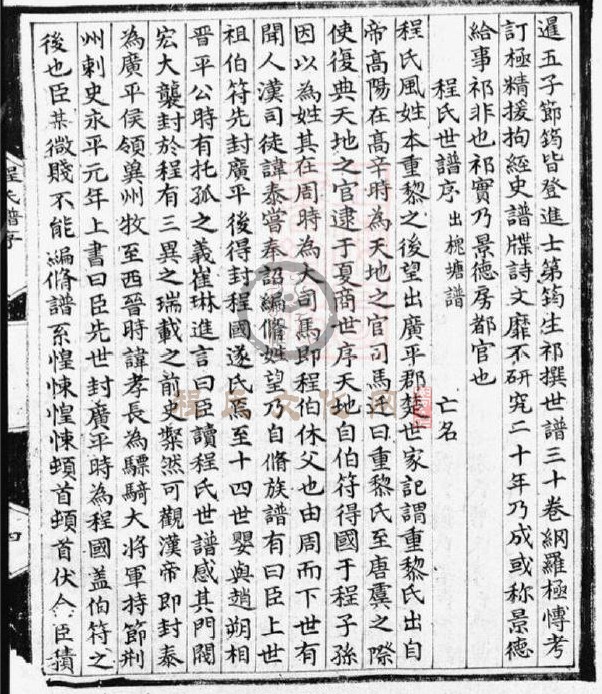 暹五子節筠皆登進士第筠生祁撰世譜三十卷網羅極慱考
訂極精援拘經史譜牒詩文靡不研究二十年乃成或称景德
給事祁非也祁實乃景德房都官也
程氏世譜序 出槐塘譜 亡名
程氏風姓本重黎之後望出廣平郡楚世家記謂重黎氏出自
帝高陽在高辛時為天地之官司馬遷曰重黎氏至唐虞之際
使復典天地之官逮于夏商世序天地自伯符得國于程子孫
因以為姓其在周時為大司馬即程伯休父也由周而下世有
聞人漢司徒諱泰嘗奉詔編脩姓望乃自脩族譜有曰臣上世
祖伯符先封廣平後得封程國遂氏焉至十四世嬰與趙朔相
晋平公時有托孤之義崔琳進言曰臣讀程氏世譜感其門閥
宏大襲封於程有三異之瑞載之前史粲然可觀漢帝即封泰
為廣平侯領兾州牧至西晉時諱孝長為驃騎大將軍持節荆
州刺史永平元年上書曰臣先世封廣平時為程國盖伯符之
後也臣某微賤不能編脩譜系惶悚惶悚頓首頓首伏念臣積
程氏譜序
四
程氏文化网